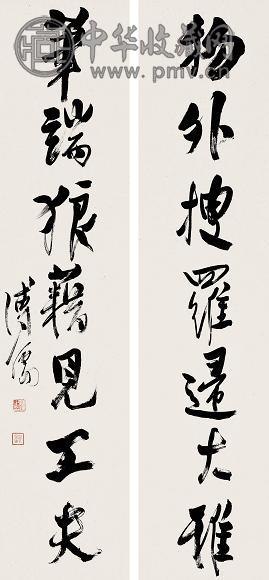 中华收藏网
www.pmv.cn
物外搜羅歸大雅
筆端狼藉見工夫
溥儒